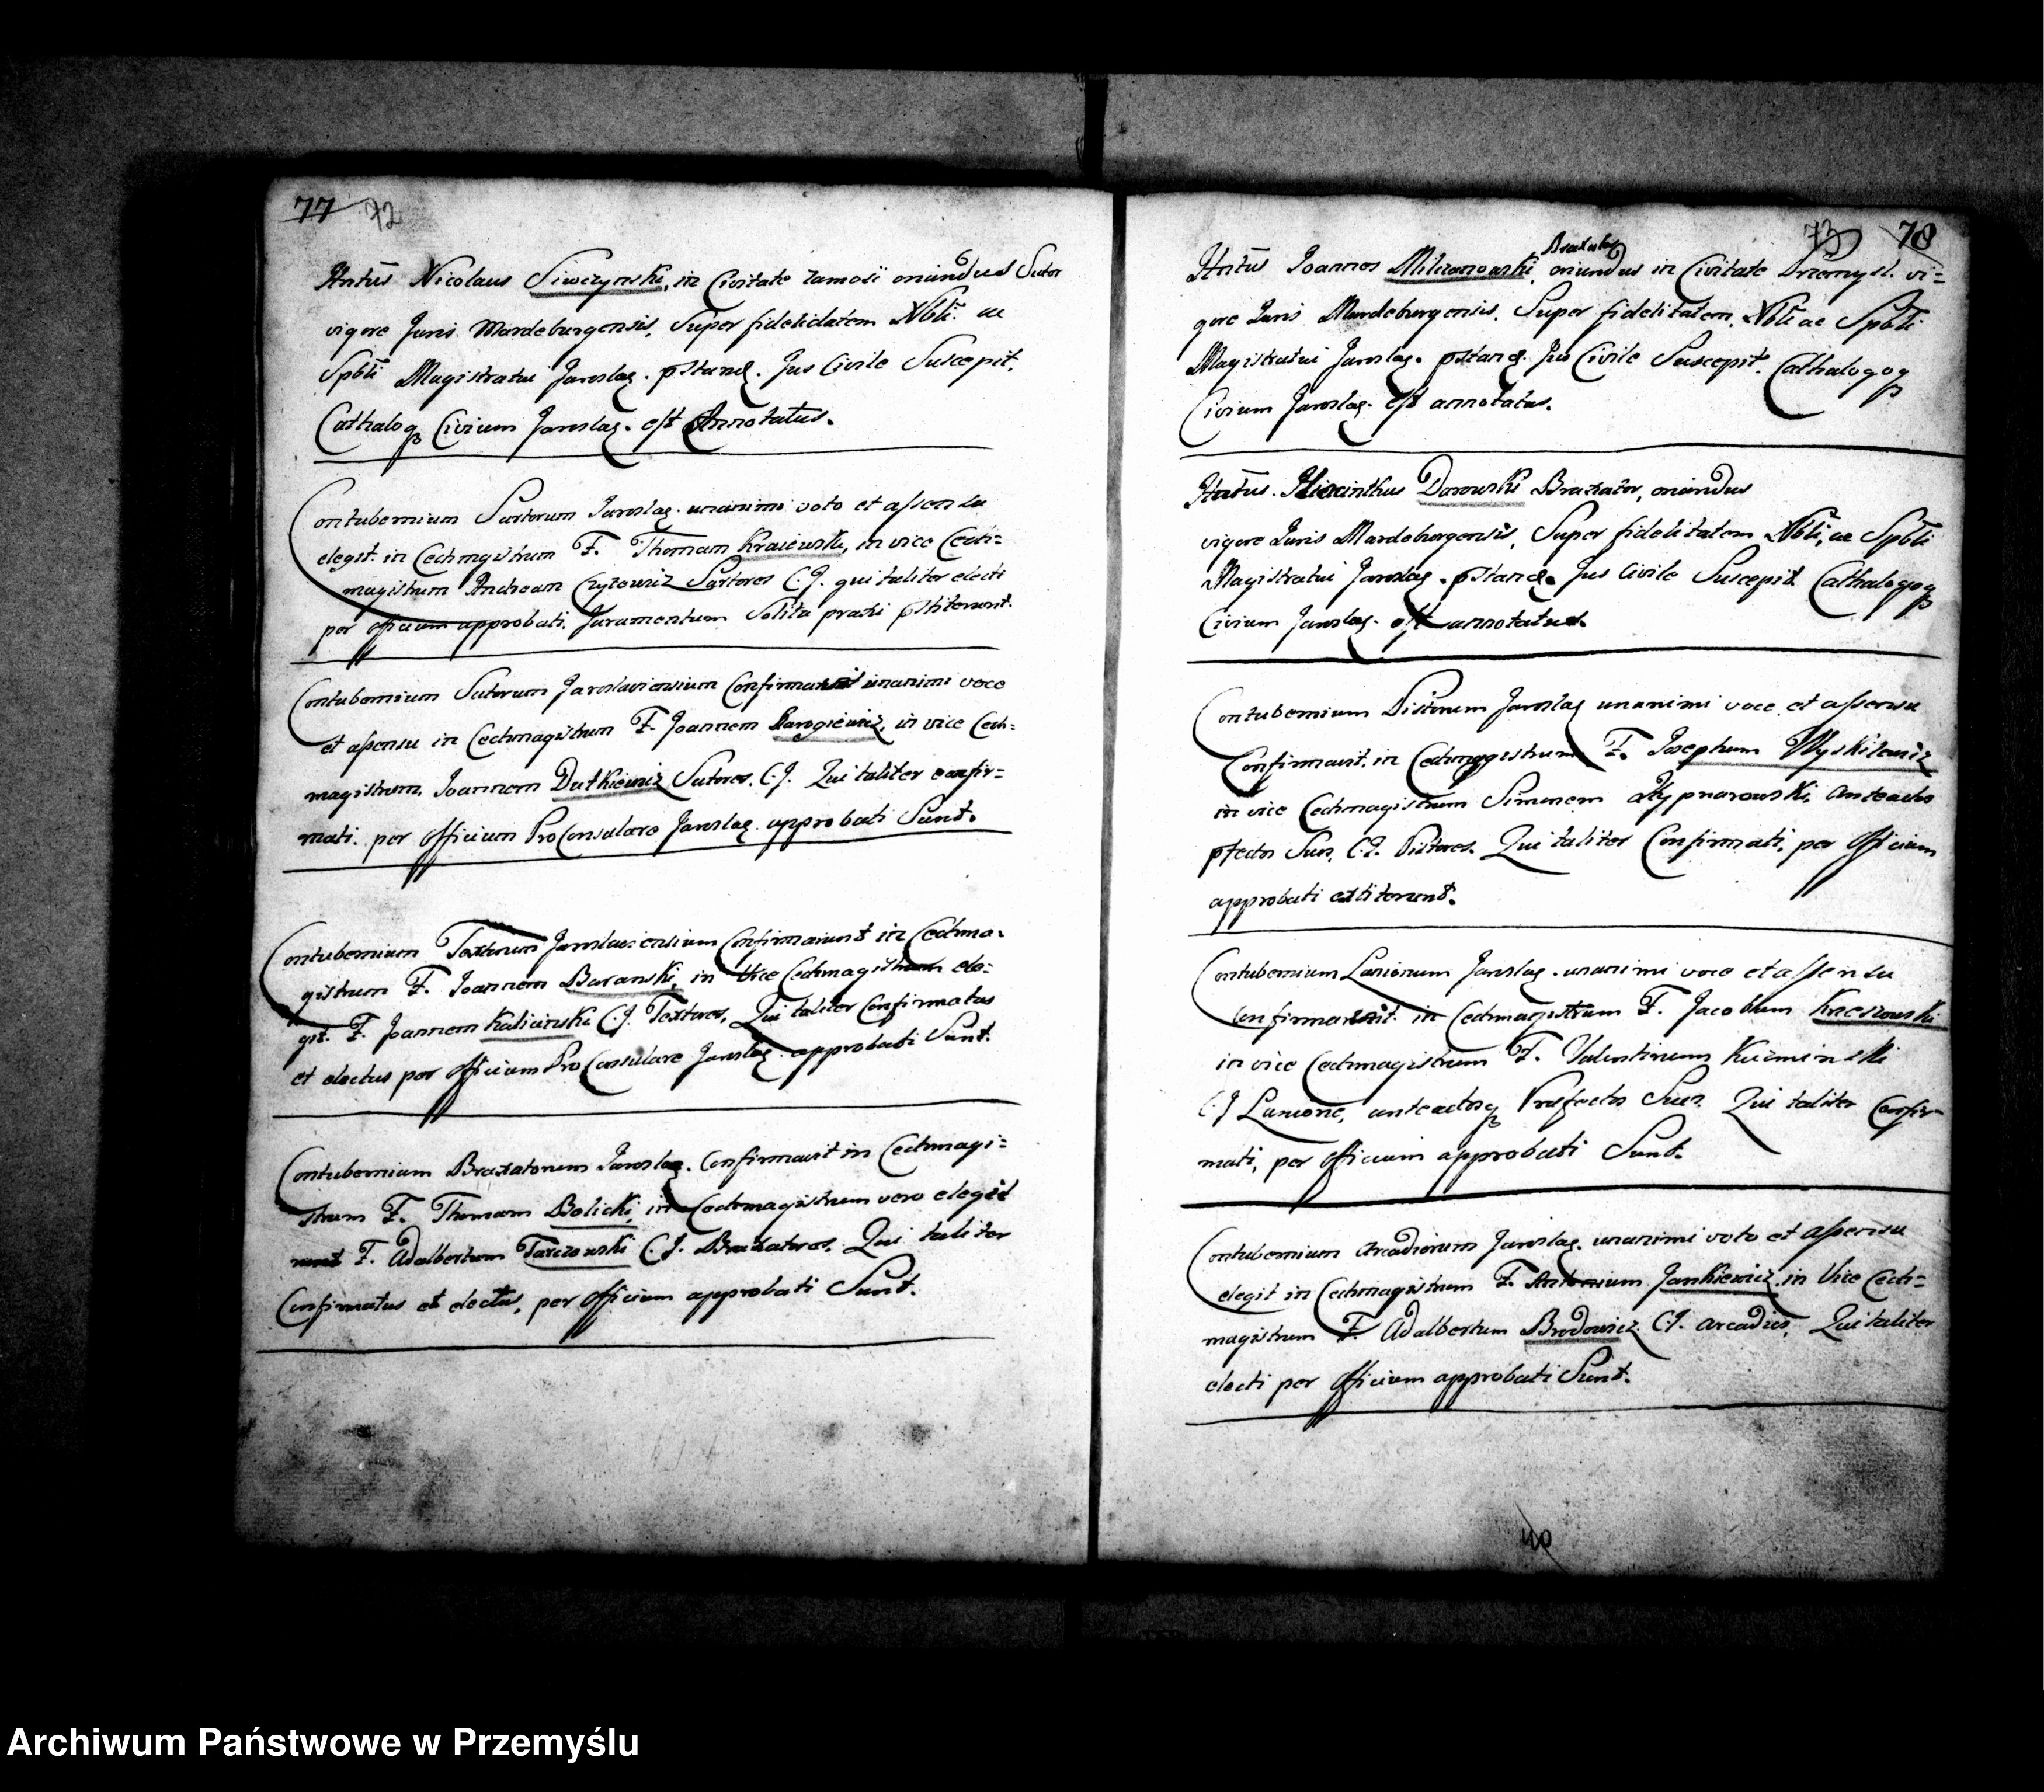 77 72
Htus Nicolaus Siwczynski, in Civitate Zamosii oriundus Sutor
vigore Juris Mardeburgensis, Super fidelidatem Nbli. ac
Spbli Magistratui Jaroslae. pstand. Jus Civile Suscepit.
Cathaloq Civium Jaroslae. est Annotatus.
Contubernium Sartorum Jaroslae. unanimi voto et assensu
elegit. in Cechmgistrum F. Thomam Kraiewski, in vice Cech=
magistrum Andream Czyzowicz Sartores C. J. qui taliter electi
per officium approbati. Juramentum Solita praxi pstiterunt.
Contubernium Sutorum Jaroslaviensium Confirmavit unanimi voce
et assensu in Cechmagistrum F. Joannem, in vice Cech=
magistrum, Joannem Dutkiewicz Sutores. C. J. Qui taliter confir=
mati. per Officium Pro Consulare Jaroslae. approbati Sunt.
Contubernium Textorum Jaroslaviensium Confirmaiunt in Cechma=
gistrum F. Joannem Baranski, in Vice Cechmagistrum ele=
git. F. Joannem Kaliciński C. J. Textores, Qui taliter Confirmatus
et electus per Officium Pro Consulare Jaroslae. approbati Sunt.
Contubernium Braxatorum Jaroslae. Confirmavit in Cechmagi=
strum F. Thomam Bolicki, in Cechmagistrum vero elegit
F. Adalbertum Tarczowski C. J. Braxatores. Qui taliter
Confirmatus et electus, per Officium approbati Sunt.
73 78
Braxator
Htus Joannes Milczanowski, oriundus in Civitate Przemysl. vi=
gore Juris Mardeburgensis. Super fidelitatem, Nbli ac Spbli
Magistratui Jaroslae. pstand. Jus Civile Suscepit. Cathalogoq
Civium Jaroslae. est annotatus.
Htus. Hiacinthus Darowski Braxator, oriundus
vigore Juris Mardeburgensis, Super fidelitatem Nbli, ac Spbli
Magistratui Jaroslae. pstand. Jus Civile Suscepit Cathalogoq
Civium Jaroslae. est annotatus.
Contubernium Pistorum Jaroslae unanimi voce et assensu
Confirmavit. in Cechmagistrum F. Josephum Wyskilewicz
in vice Cechmagistrum Simonem Rypnarowski, Anteacto
pfecto Suos, C. J. Pistores. Qui taliter Confirmati, per Officium
approbati extiterunt.
Contubernium Lanionum Jaroslae. unanimi voce et assensu
Confirmavit. in Cechmagistrum F. Jacobum Kreszowski
in vice Cechmagistrum F. Valentinum Kuzminski
C. J Lanione, anteactosq Praefectos Suos. Qui taliter Confir=
mati, per Officium approbati Sunt.
Contubernium Arcadiorum Jaroslae. unanimi voto et assensu
elegit in Cechmagistrum F. Antonium Jankiewicz in Vice Cech=
magistrum F. Adalbertum Brodowicz C. J. Arcadios, Qui taliter
electi per Officium approbati Sunt.
40
Archiwum Państwowe w Przemyślu